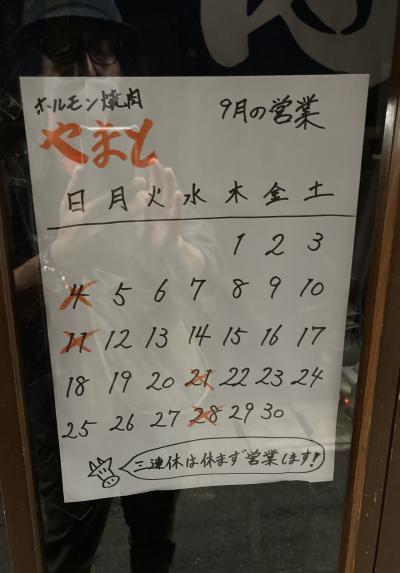 ホルモン焼肉
やまと
9月の営業
日 月 火 水 木 金 土
1 2 3
4 5 6 7 8 9 10
11 12 13 14 15 16 17
18 19 20 21 22 23 24
25 26 27 28 29 30
三連休は休まず営業します!